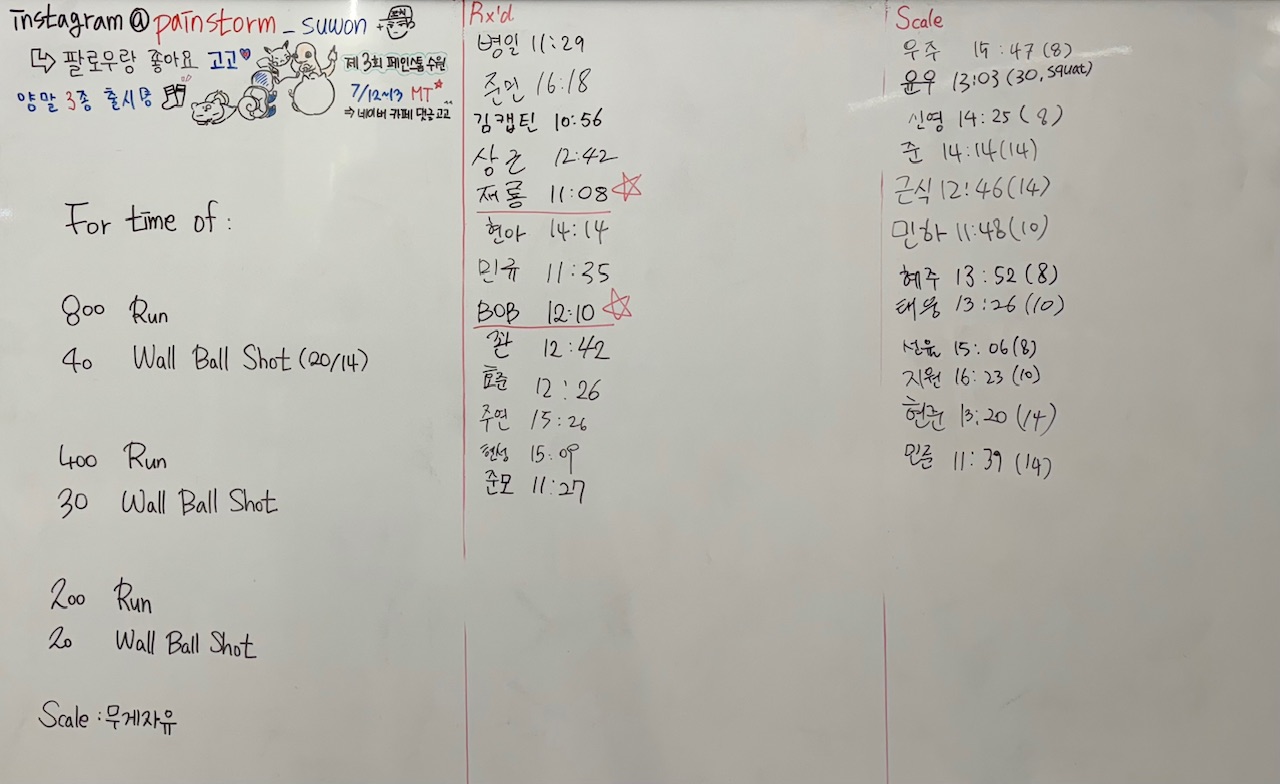 instagram@painstorm_suwon +
↳ 팔로우랑 좋아요 고고♥
양말 3종 출시중
제 3회 페인스톰 수원
7/12~13 MT☆
⇒ 네이버 카페 댓글 고고^^
For time of:
800 Run
40 Wall Ball Shot (20/14)
400 Run
30 Wall Ball Shot
200 Run
20 Wall Ball Shot
Scale : 무게자유
Rx'd
병일 11:29
준민 16:18
김캡틴 10:56
상근 12:42
재룡 11:08 ☆
현아 14:14
민규 11:35
BOB 12:10 ☆
좐 12:42
효준 12:26
주연 15:26
현성 15:09
준모 11:27
Scale
우주 15:47 (8)
윤우 13:03 (30, squat)
신영 14:25 (8)
준 14:14 (14)
근식 12:46 (14)
민하 11:48 (10)
혜주 13:52 (8)
태웅 13:26 (10)
선율 15:06 (8)
지원 16:23 (10)
현준 13:20 (14)
민준 11:39 (14)